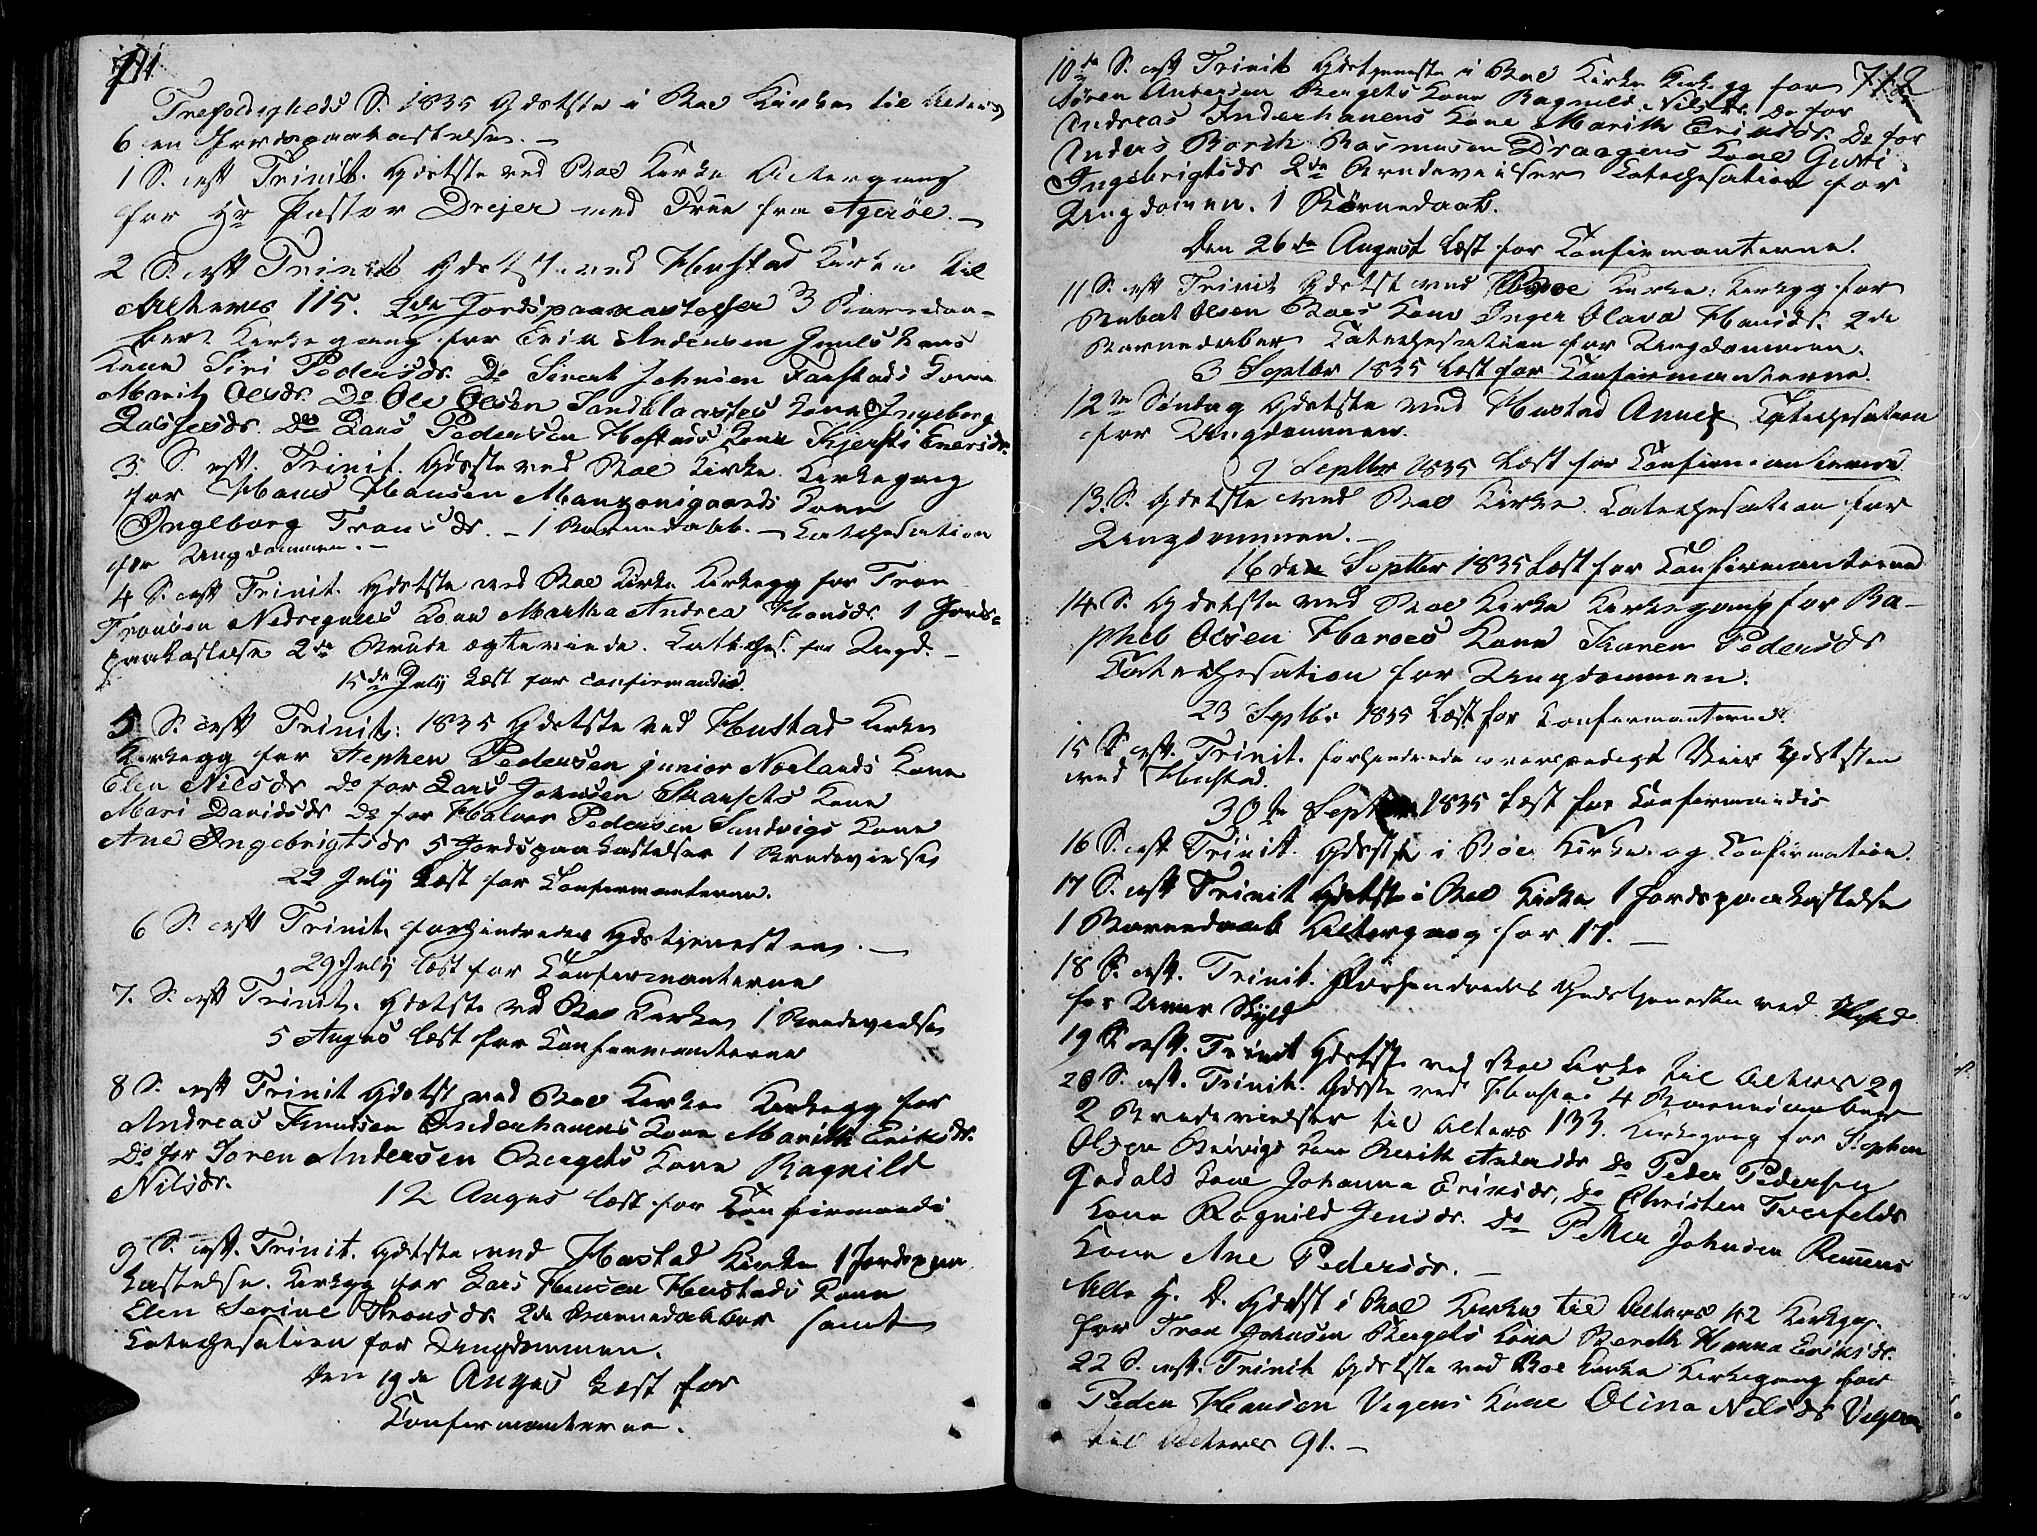 711
Trefoldigheds S. 1835 Gdstste i Boe Kirke til Alters
6 en Jordspaakastelse. —
1 S. eft Trinit. Gdstste ved Boe Kirke Altergang
for Hr Pastor Drejer med Frue fra Agerøe. —
2 S. eft Trinit Gdstst. ved Hustad Kirke til
Alters 115. 2de Jordspaakastelser 3 Barnedaa-
ber Kirkegang for Erik Andersen Kone
Kone Siri Pedersdr. Do Sivert Johnsen Farstads Kone
Marit Olsdr. Do Ole Olsen Sandblaastes Kone Ingeborg
Lassesdr. Do Lars Pedersen Hostads Kone Kjersti Eneersdr.
3 S. eft. Trinit. Gdsste ved Boe Kirke. Kirkegang
for Hans Hansen Kone
Ingeborg Tronsdr. — 1 Barnedaab. — Catechesation
for Ungdommen. —
4 S. eft Trinit. Gdstste ved Boe Kirke Kirkegg for Tron
Tronsen Nedregaars Kone Martha Andrea Hansdr. 1 Jords-
paakastelse 2de Brude ægteviede. Cateches. for Ungd. —
15de July Læst for Confirmandis.
5 S. eft Trinit: 1835 Gdstste ved Hustad Kirke
Kirkegg for Stephen Pedersen junior Nerlands Kone
Elen Nilsdr do for Lars Johnsen Skarsets Kone
Mari Davidsdr do for Halvor Pedersen Sandvigs Kone
Ane Ingebrigtsdr 5 Jordspaakastelser 1 Brudevielse
22 July Læst for Confirmanterne.
6 S. eft Trinit. forhindredes Gdstjenesten. —
29 July læst for Confirmanterne
7. S. eft Trinit. Gdstste ved Boe Kirke 1 Brudevielse
5 Augus læst for Confirmanterne
8 S. eft Trinit Gdstst ved Boe Kirke Kirkegg for
Andreas Knudsen Inderhavens Kone Marith Eriksdr.
Do for Soren Andersen Bergets Kone Ragnild
Nilsdr.
12 Augus læst for Confirmandi
9 S. eft. Trinit. Gdstste ved Hustad Kirke 1 Jordspaa
kastelse. Kirkegg for Lars Hansen Hustads Kone
Elen Serine Tronsdr. 2de Barnedaaber samt
Catechesation for Ungdommen.
Den 19de Augus Læst for
Confirmanterne.
712
10de S. eft Trinit Gdstjeneste i Boe Kirke Kirkegg for
Søren Andersen Bergets Kone Ragnild Nilsdr. Do for
Andreas Inderhavens Kone Marith Eriksdr. Do for
Anders Borch Rasmusen Draagens Kone Gurti
Ingebrigtsdr 2de Brudevielser Catechesation for
Ungdommen. 1 Børnedaab.
Den 26de August Læst for Confirmanterne.
11 S. eft Trinit Gdstst ved Boe Kirke. Kirkegg for
Olsen Boes Kone Inger Olava Hansdr. 2de
Barnedaaber Catechesation for Ungdommen.
3 Septbr 1835 Læst for Confirmanterne.
12te Søndag Gdstste ved Hustad Annex Catechesation
for Ungdommen.
9 Septbr 1835 Læst for Confirmanterne
13. S. Gdstste ved Boe Kirke. Catechesation for
Ungdommen. —
16den Septbr 1835 Læst for Confirmanterne
14 S. Gdstste ved Boe Kirke Kirkegang for Ra-
phel Olsen Haroes Kone Karen Pedersdr
Catechesation for Ungdommen.
23 Septbr 1835 Læst for Confirmanterne
15 S. eft. Trinit. forhindrede Veir Gdststen
ved Hustad.
30te Septbr 1835 Læst for Confirmandis
16 S. eft Trinit. Gdstste i Boe Kirke og Confirmation.
17 S. eft Trinit Gdstste i Boe Kirke 1 Jordspaakastelse
1 Barnedaab Altergang for 17. —
18 S. eft. Trinit. Forhindredes Gudstjenesten ved Hustad
for Skyld
19 S. eft. Trinit Gdstste ved Boe Kirke til Alters 29
20 S. eft. Trinit. Gdstste ved Hustad 4 Barnedaaber
2 Brudevielser til Alters 133. Kirkegang for Stephen
Olsen Kone Berith Andersdr Do Peder Pedersen
Godals Kone Johanna Eriksdr, Do Christen Tverfelds
Kone Ragnild Jensdr. Do Petter Johnsen Remens
Kone Ane Pedersdr. —
Alle H. D. Gdstst i Boe Kirke til Alters 42 Kirkegg.
for Tron Johnsen Bergets Kone Bereth Hanna Eriksdr.
22 S. eft. Trinit Gdstste ved Boe Kirke Kirkegang for
Peder Hansen Vegens Kone Olina Nilsdr
til Alters 91. —